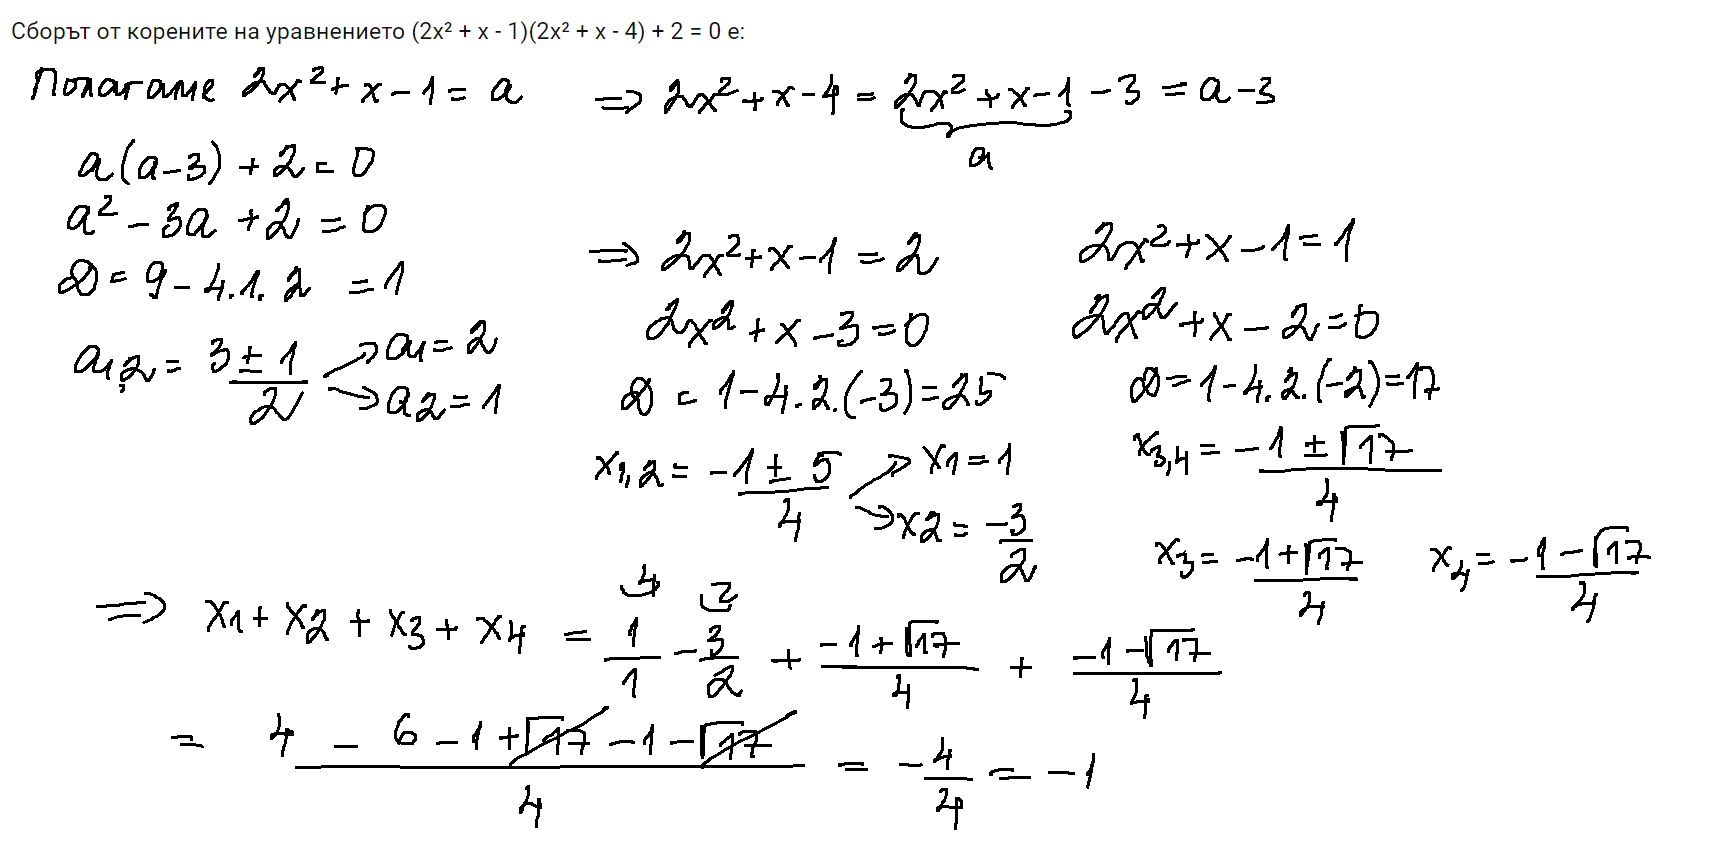 Сборът от корените на уравнението (2x² + x - 1)(2x² + x - 4) + 2 = 0 е:
Полагаме 2x² + x - 1 = a ⇒ 2x² + x - 4 = 2x² + x - 1 - 3 = a - 3
a
a(a - 3) + 2 = 0
a² - 3a + 2 = 0
D = 9 - 4.1.2 = 1
a1,2 = (3 ± 1)/2 → a1 = 2
→ a2 = 1
⇒ 2x² + x - 1 = 2
2x² + x - 3 = 0
D = 1 - 4.2.(-3) = 25
x1,2 = (-1 ± 5)/4 → x1 = 1
→ x2 = -3/2
2x² + x - 1 = 1
2x² + x - 2 = 0
D = 1 - 4.2.(-2) = 17
x3,4 = (-1 ± √17)/4
x3 = (-1 + √17)/4 x4 = (-1 - √17)/4
4 2
⇒ x1 + x2 + x3 + x4 = 1/1 - 3/2 + (-1 + √17)/4 + (-1 - √17)/4
= (4 - 6 - 1 + √17 - 1 - √17)/4 = -4/4 = -1